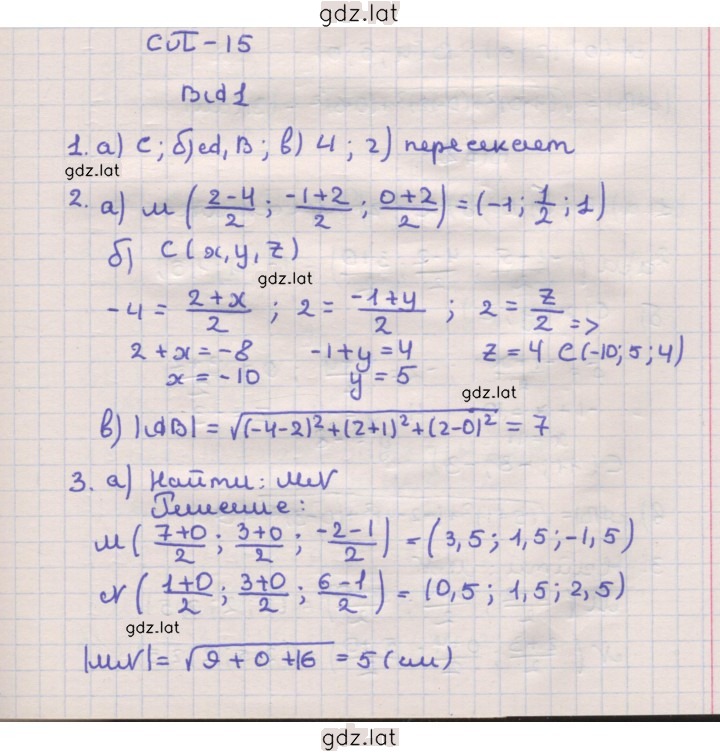 gdz.lat
СП-15
В A1
1. а) C; б) A, B; в) 4; г) пересекает
gdz.lat
2. а) M (2-4/2; -1+2/2; 0+2/2) = (-1; 1/2; 1)
б) C(x, y, z)
gdz.lat
-4 = 2+x/2; 2 = -1+y/2; 2 = z/2 =>
2+x=-8 -1+y=4 z=4 C(-10; 5; 4)
x=-10 y=5
gdz.lat
в) |AB| = √(-4-2)²+(2+1)²+(2-0)² = 7
3. а) Найти: MN
Решение:
M (7+0/2; 3+0/2; -2-1/2) = (3,5; 1,5; -1,5)
N (1+0/2; 3+0/2; 6-1/2) = (0,5; 1,5; 2,5)
gdz.lat
|MN| = √9+0+16 = 5 (см)
gdz.lat